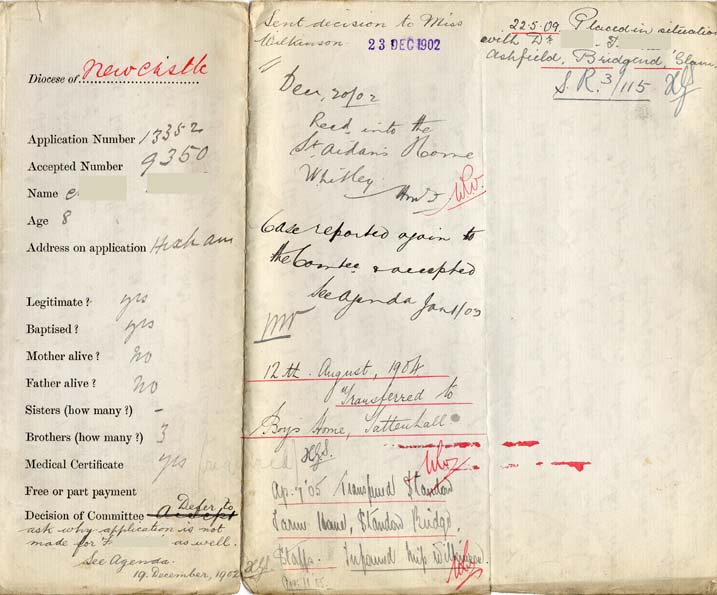 Diocese of Newcastle
Application Number 13352
Accepted Number 9350
Name C
Age 8
Address on application Hexham
Legitimate? yes
Baptised? yes
Mother alive? no
Father alive? no
Sisters (how many?) -
Brothers (how many?) 3
Medical Certificate yes
Free or part payment
Decision of Committee Accept Defer to
ask why application is not
made for F as well.
See Agenda.
19. December, 1902
Sent decision to Miss
Wilkinson. 23 DEC 1902
Decr, 20/02
Recd into the
St. Aidans Home
Whitley
Case reported again to
the Comtee & accepted
See Agenda Jan 1/03
12th. August, 1904
Transferred to
Boys Home, Tattenhall
Ap. 7 '05 Transferred Standon
Farm Home, Standon Bridge,
Staffs. Informed Miss Wilkinson.
22-5-09. Placed in situation
with Dr T.
Ashfield, Bridgend, Glam.
S. R. 3/115